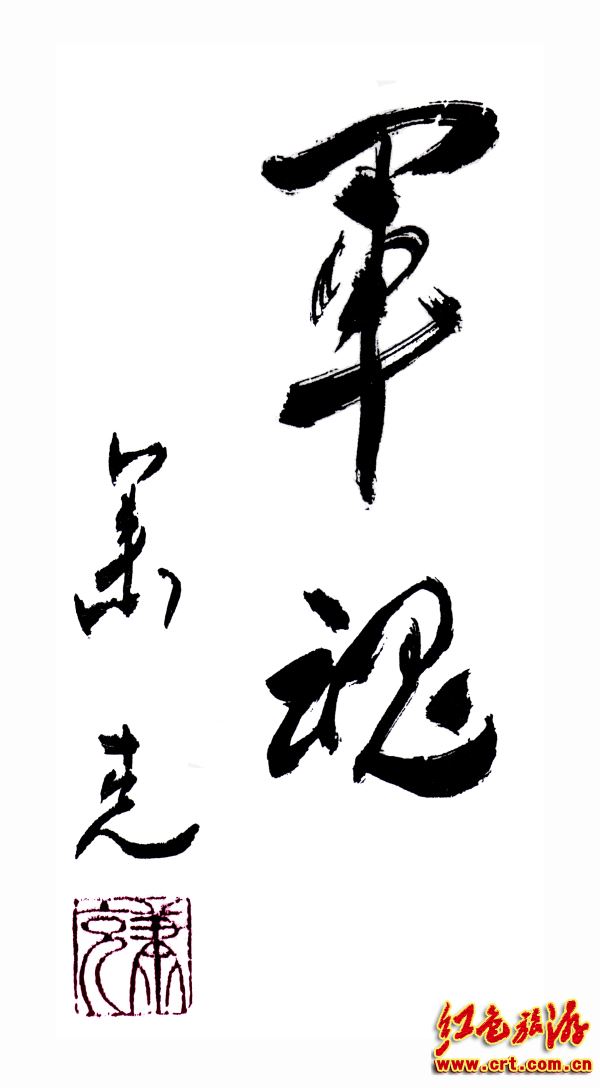 軍魂
萧克
萧克
红色旅游
www.crt.com.cn